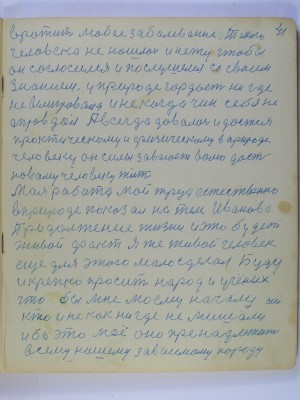 вротит мобое заболевание. Такого 41
человека не нашлося и нету чтобы
он согласился и послушался со своим
знанием. и природе гордост ни где
не выиграваит и некогда чин себя не
оправдал А всегда давался и дается
практическому и физическому в природе
человеку он силы завоюет ему даст
новому человеку жит
Моя работа мой труд естественно
в природе показал на теле Иванова
Продолжение жизни и это будет
живой факт Я же живой человек
еще для этого мало сделал Буду
и крепко просит народ и ученых
что бы мне моему началу ни
кто и не как ни где не мешали
ибо это моё оно пренадлежит
всему нашему зависимому народу